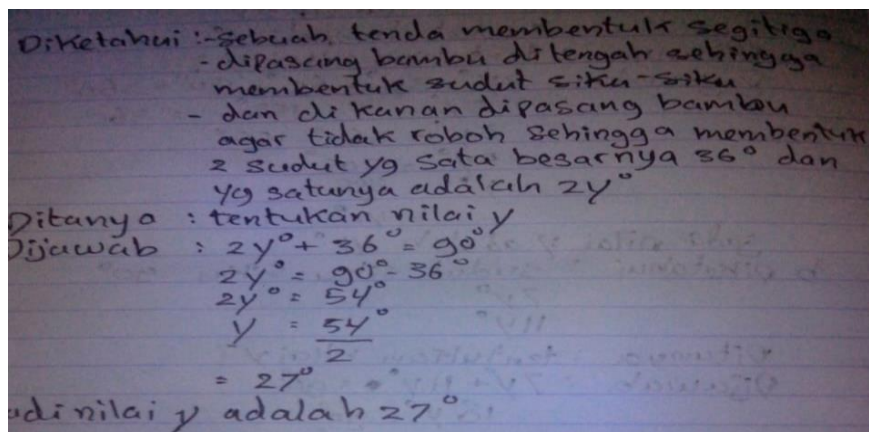 Diketahui :- Sebuah tenda membentuk segitiga
- dipasang bambu ditengah sehingga
membentuk sudut siku-siku
- dan di kanan dipasang bambu
agar tidak roboh sehingga membentuk
2 sudut yg satu besarnya 36° dan
yg satunya adalah 2y°
Ditanya : tentukan nilai y
Dijawab : 2y° + 36° = 90°
2y° = 90° - 36°
2y° = 54°
y = 54°
2
= 27°
adi nilai y adalah 27°